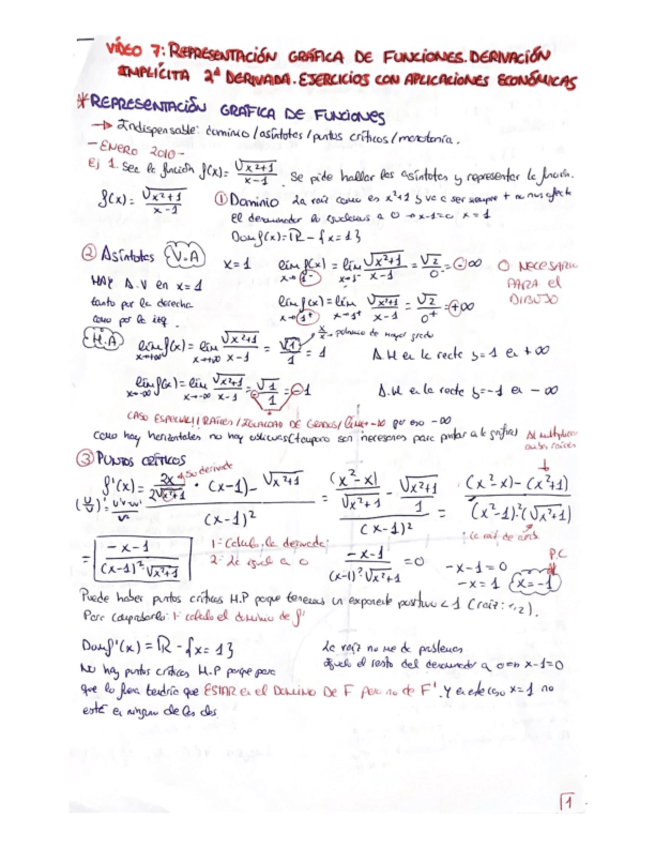 VÍDEO 7: REPRESENTACIÓN GRÁFICA DE FUNCIONES. DERIVACIÓN
IMPLÍCITA 2ª DERIVADA. EJERCICIOS CON APLICACIONES ECONÓMICAS
* REPRESENTACIÓN GRÁFICA DE FUNCIONES
→ Indispensable: dominio / asíntotas / puntos críticos / monotonía.
- ENERO 2010 -
Ej 1. Sea la función f(x) = √x²+1 / x-1. Se pide hallar las asíntotas y representar la función.
f(x) = √x²+1 / x-1 ① Dominio La raíz como es x²+1 va a ser siempre + no nos afecta
el denominador lo igualamos a 0 → x-1=0 x=1
Dom f(x) = ℝ - {x=1}
② Asíntotas (V.A) x=1 lim x→1⁻ f(x) = lim x→1⁻ √x²+1 / x-1 = √2 / 0⁻ = -∞ O NECESARIO
HAY A.V en x=1 PARA el
tanto por la derecha lim x→1⁺ f(x) = lim x→1⁺ √x²+1 / x-1 = √2 / 0⁺ = +∞ DIBUJO
como por la izq.
(H.A) lim x→+∞ f(x) = lim x→+∞ √x²+1 / x-1 = √1 / 1 = 1 polinomio de mayor grado A.H en la recta y=1 en +∞
lim x→-∞ f(x) = lim x→-∞ √x²+1 / x-1 = √1 / 1 = -1 A.H en la recta y=-1 en -∞
CASO ESPECIAL!! RAÍCES / IGUALDAD DE GRADOS / lim x→-∞ por eso -∞
Como hay horizontales no hay oblicuas (tampoco son necesarias para pintar la gráfica) Al multiplicar
③ PUNTOS CRÍTICOS su derivada
f'(x) = 2x / 2√x²+1 · (x-1) - √x²+1 / (x-1)² = (x²-x) / √x²+1 - √x²+1 / 1 / (x-1)² = (x²-x)-(x²+1) / (x-1)²·(√x²+1)
= -x-1 / (x-1)²·√x²+1 1: Calculo la derivada -x-1 / (x-1)²√x²+1 = 0 -x-1=0 P.C
2: La igual a 0 -x=1 (x=-1)
Puede haber puntos críticos H.P porque tenemos un exponente positivo < 1 (raíz: 1/2).
Para comprobarlo: 1: calculo el dominio de f'
Dom f'(x) = ℝ - {x=1} La raíz no me da problemas
igualo el resto del denominador a 0 → x-1=0
No hay puntos críticos H.P porque para
que lo fuera tendría que ESTAR en el DOMINIO DE F pero no de F'. Y en este caso x=1 no
está en ninguno de los dos.
1